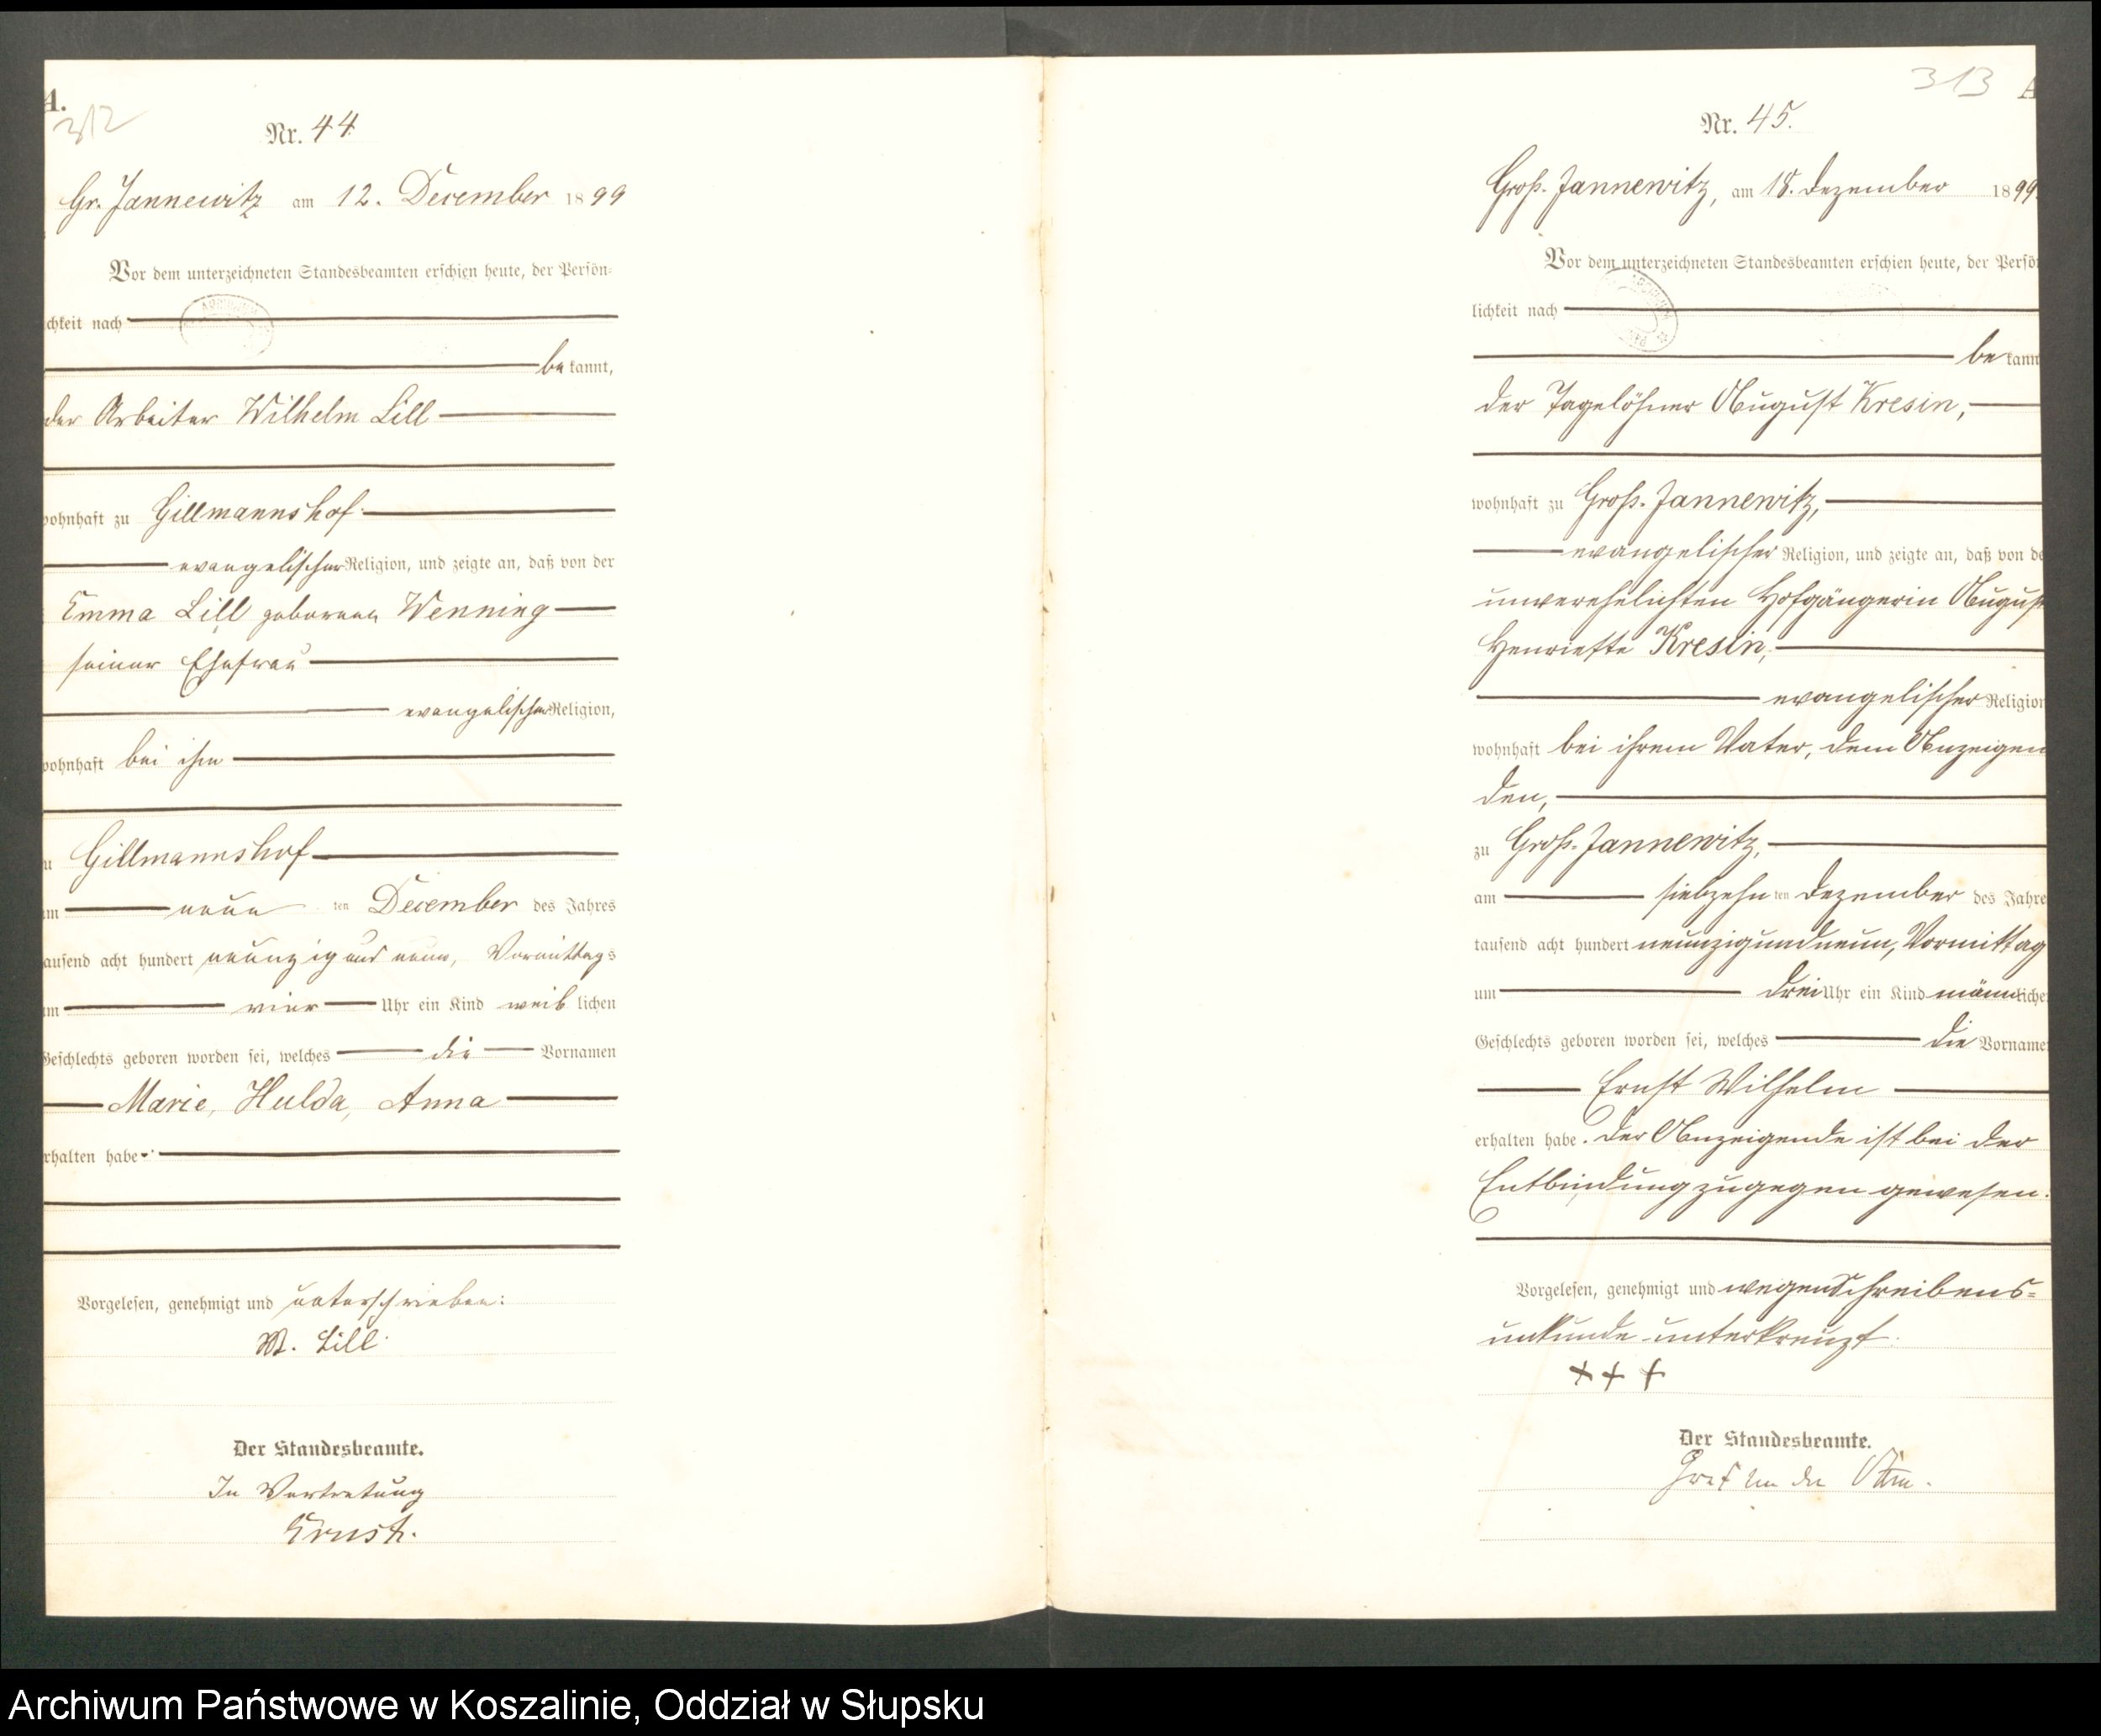 A.
312
Nr. 44.
Gr. Jannewitz am 12. December 1899
Vor dem unterzeichneten Standesbeamten erschien heute, der Persön-
chkeit nach
be kannt,
der Arbeiter Wilhelm Lill
wohnhaft zu Gillmannshof
evangelischer Religion, und zeigte an, daß von der
Emma Lill geborenen Wenning
seiner Ehefrau
evangelischer Religion,
wohnhaft bei ihm
zu Gillmannshof
am neun ten December des Jahres
tausend acht hundert neunzig und neun, Vormittags
um vier Uhr ein Kind weib lichen
Geschlechts geboren worden sei, welches die Vornamen
Marie, Hulda, Anna
erhalten habe.
Vorgelesen, genehmigt und unterschrieben:
W. Lill.
Der Standesbeamte.
In Vertretung
Ernst.
313 A
Nr. 45.
Groß-Jannewitz, am 18. Dezember 1899
Vor dem unterzeichneten Standesbeamten erschien heute, der Persö
lichkeit nach
be kann
der Tagelöhner August Kresin,
wohnhaft zu Groß-Jannewitz,
evangelischer Religion, und zeigte an, daß von de
unverehelichten Hofgängerin August
Henriette Kresin,
evangelischer Religion
wohnhaft bei ihrem Vater, dem Anzeigen
den,
zu Groß-Jannewitz,
am siebzehn ten Dezember des Jahre
tausend acht hundert neunzigundneun, Vormittag
um drei Uhr ein Kind männliche
Geschlechts geboren worden sei, welches die Vorname
Ernst Wilhelm
erhalten habe. Der Anzeigende ist bei der
Entbindung zugegen gewesen.
Vorgelesen, genehmigt und wegen Schreibens-
unkunde unterkreuzt.
+ + +
Der Standesbeamte.
Graf von der
Archiwum Państwowe w Koszalinie, Oddział w Słupsku